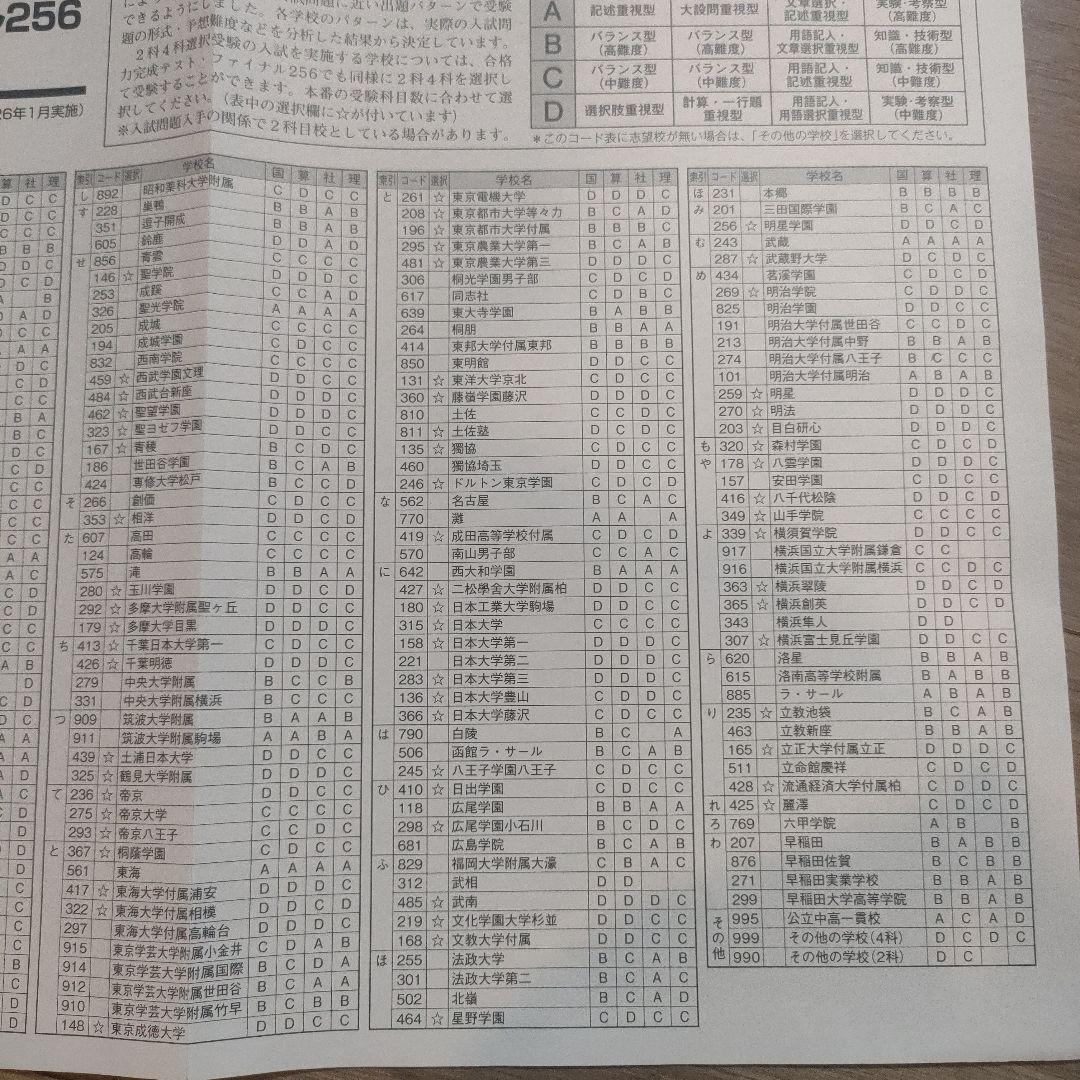 256
26年1月実施)
できるようにしました。各学校のパターンは、実際の入試問
題の形式・予想難度などを分析した結果から決定しています。
2科4科選択受験の入試を実施する学校については、合格
力完成テスト・ファイナル256でも同様に2科4科を選択し
て受験することができます。本番の受験科目数に合わせて選
択してください。(表中の選択欄に☆が付いています)
※入試問題入手の関係で2科目校としている場合があります。
A 記述重視型 大設問重視型 文章選択・記述重視型 実験・考察型(高難度)
B バランス型(高難度) バランス型(高難度) 用語記入・文章選択重視型 知識・技術型(高難度)
C バランス型(中難度) バランス型(中難度) 用語記入・記述重視型 知識・技術型(中難度)
D 選択肢重視型 計算・一行題重視型 用語記入・用語選択重視型 実験・考察型(中難度)
*このコード表に志望校が無い場合は、「その他の学校」を選択してください。
算 社 理
索引 コード 選択 学校名 国 算 社 理
し 892 昭和薬科大学附属 C D C C
す 228 巣鴨 B B A B
351 逗子開成 B B A B
605 鈴鹿 D D A D
せ 856 青雲 C C C C
146 ☆ 聖学院 D D C D
253 成蹊 C C A D
326 聖光学院 A A A A
205 成城 C C C C
194 成城学園 C C C C
832 西南学院 C C C C
459 ☆ 西武学園文理 D D C C
484 ☆ 西武台新座 D D C C
462 ☆ 聖望学園 D D C C
323 ☆ 聖ヨゼフ学園 D D C C
167 ☆ 青稜 B C D C
186 世田谷学園 B C A B
424 専修大学松戸 B C C D
そ 266 創価 C C C C
353 ☆ 相洋 D D C D
た 607 高田 C C C C
124 高輪 C C C C
575 滝 B B A A
280 ☆ 玉川学園 D D C D
292 ☆ 多摩大学附属聖ヶ丘 D D C D
179 ☆ 多摩大学目黒 D D D C
ち 413 ☆ 千葉日本大学第一 C D C C
426 ☆ 千葉明徳 D D D C
279 中央大学附属 B C C B
331 中央大学附属横浜 B C C C
つ 909 筑波大学附属 B A A B
911 筑波大学附属駒場 A A B A
439 ☆ 土浦日本大学 D D D C
325 ☆ 鶴見大学附属 D D C C
て 236 ☆ 帝京 D D C C
275 ☆ 帝京大学 C C C C
293 ☆ 帝京八王子 C C D C
と 367 ☆ 桐蔭学園 C D C C
561 東海 A A A A
417 ☆ 東海大学付属浦安 D D D C
322 ☆ 東海大学付属相模 D D C D
297 東海大学付属高輪台 D D D C
915 東京学芸大学附属小金井 C D A B
914 東京学芸大学附属国際 B C D A
912 東京学芸大学附属世田谷 B C A A
910 東京学芸大学附属竹早 B C B B
148 ☆ 東京成徳大学 D D C C
索引 コード 選択 学校名 国 算 社 理
と 261 ☆ 東京電機大学 D D D C
208 ☆ 東京都市大学等々力 B C A D
196 ☆ 東京都市大学付属 B B B C
295 ☆ 東京農業大学第一 B C A B
481 ☆ 東京農業大学第三 D D D C
306 桐光学園男子部 C D C D
617 同志社 C D B C
639 東大寺学園 B A B B
264 桐朋 B B A A
414 東邦大学付属東邦 B B B B
850 東明館 D D C C
131 ☆ 東洋大学京北 C D C C
360 ☆ 藤嶺学園藤沢 D D C C
810 土佐 C C D C
811 ☆ 土佐塾 D D C C
135 ☆ 獨協 C D C C
460 獨協埼玉 D D C C
246 ☆ ドルトン東京学園 C D C D
な 562 名古屋 B C A C
770 灘 A A A
419 ☆ 成田高等学校付属 C D C D
570 南山男子部 C C A C
に 642 西大和学園 B A A A
427 ☆ 二松學舍大学附属柏 D D C C
180 ☆ 日本工業大学駒場 D D C C
315 ☆ 日本大学 C C C C
158 ☆ 日本大学第一 D D D C
221 日本大学第二 D D D C
283 ☆ 日本大学第三 D D C C
136 ☆ 日本大学豊山 C D D C
366 ☆ 日本大学藤沢 C D C C
は 790 白陵 B C A
506 函館ラ・サール B C A B
245 ☆ 八王子学園八王子 C D C C
ひ 410 ☆ 日出学園 C D C C
118 広尾学園 B B A A
298 ☆ 広尾学園小石川 B C D C
681 広島学院 B C A B
ふ 829 福岡大学附属大濠 C B A C
312 武相 D D
485 ☆ 武南 D D D C
219 ☆ 文化学園大学杉並 D D C C
168 ☆ 文教大学付属 D D C C
ほ 255 法政大学 B C A B
301 法政大学第二 B C A C
502 北嶺 B C A D
464 ☆ 星野学園 C D C C
索引 コード 選択 学校名 国 算 社 理
ほ 231 本郷 B B B B
み 201 三田国際学園 B C A C
256 ☆ 明星学園 D D C D
む 243 武蔵 A A A A
287 ☆ 武蔵野大学 D C D C
め 434 茗溪学園 C D C D
269 ☆ 明治学院 C D D C
825 明治学園 D D C C
191 明治大学付属世田谷 C C D C
213 明治大学付属中野 B B A B
274 明治大学付属八王子 B C C C
101 明治大学付属明治 A B A B
259 ☆ 明星 D D D C
270 ☆ 明法 D D D C
203 ☆ 目白研心 D D D C
も 320 ☆ 森村学園 C D C D
や 178 ☆ 八雲学園 D D D C
157 安田学園 C D C C
416 ☆ 八千代松陰 D D C D
349 ☆ 山手学院 C C D C
よ 339 ☆ 横須賀学院 D D C C
917 横浜国立大学附属鎌倉 C C
916 横浜国立大学附属横浜 C C D C
363 ☆ 横浜翠陵 D D C D
365 ☆ 横浜創英 D D C D
343 横浜隼人 D D
307 ☆ 横浜富士見丘学園 D D C C
ら 620 洛星 B B A B
615 洛南高等学校附属 B A B B
885 ラ・サール A B A B
り 235 ☆ 立教池袋 B C A B
463 立教新座 B B A B
165 ☆ 立正大学付属立正 D D D C
511 立命館慶祥 C D C D
428 ☆ 流通経済大学付属柏 C D D C
れ 425 ☆ 麗澤 C D C D
ろ 769 六甲学院 A B B
わ 207 早稲田 B A B B
876 早稲田佐賀 B C B B
271 早稲田実業学校 B B A B
299 早稲田大学高等学院 B B A B
その他 995 公立中高一貫校 A C A D
999 その他の学校(4科) D C D C
990 その他の学校(2科) D C